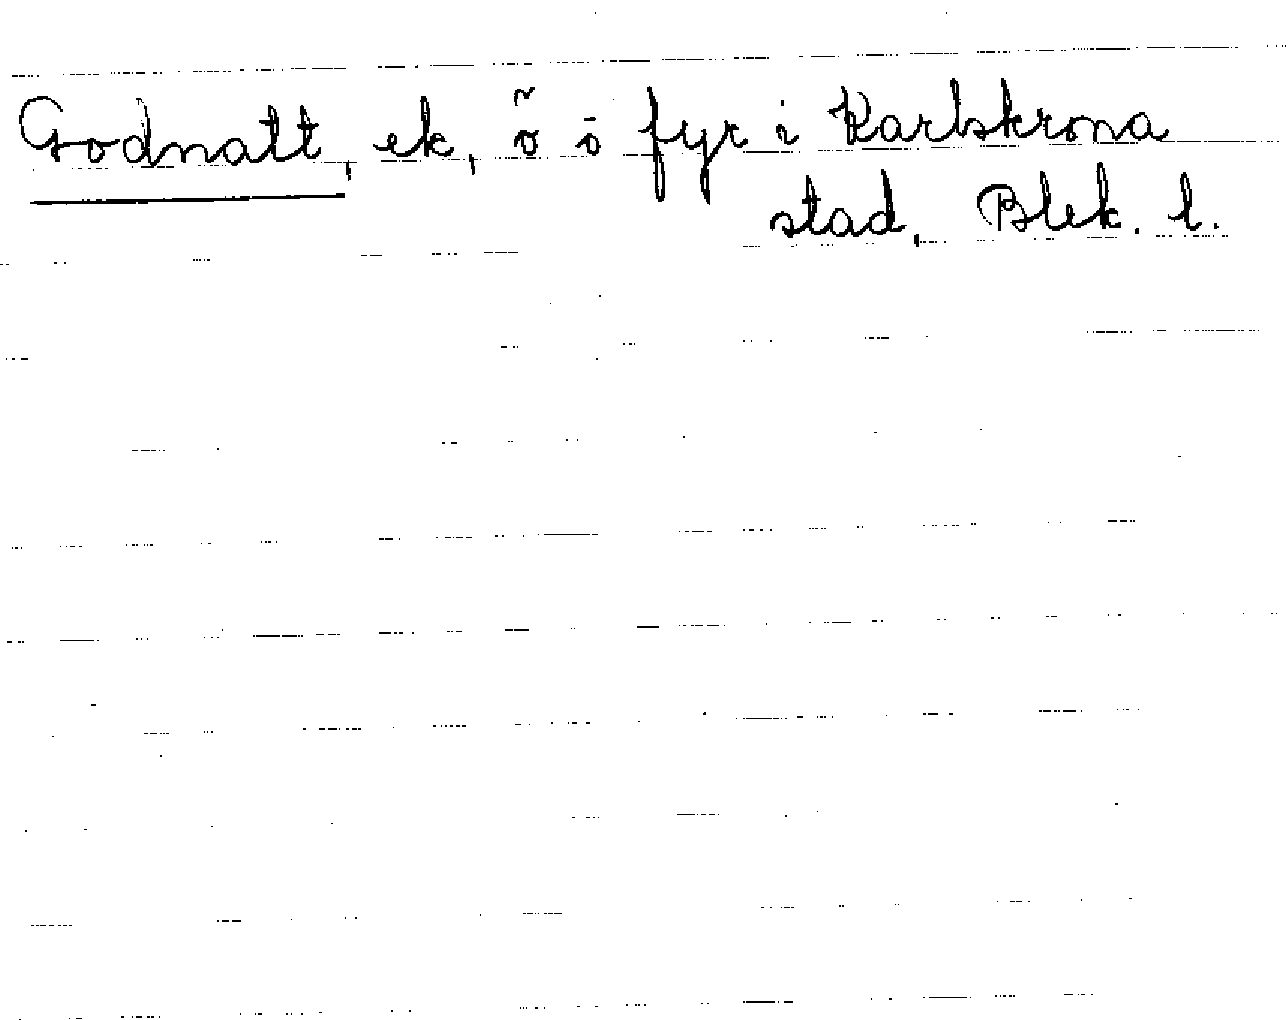 Godnatt, ek, ö o fyr i Karlskrona
stad, Blek. l.